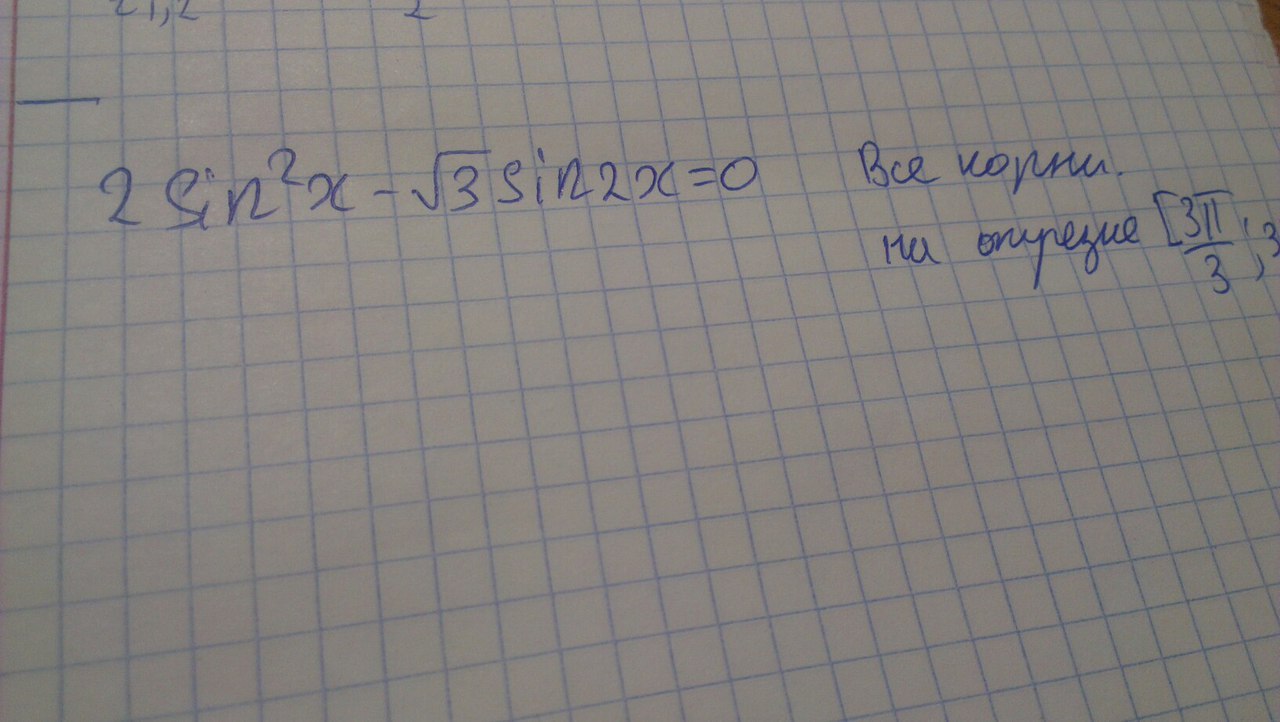 2 sin²x - √3 sin2x = 0
Все корни.
на отрезке [3π/3; 3